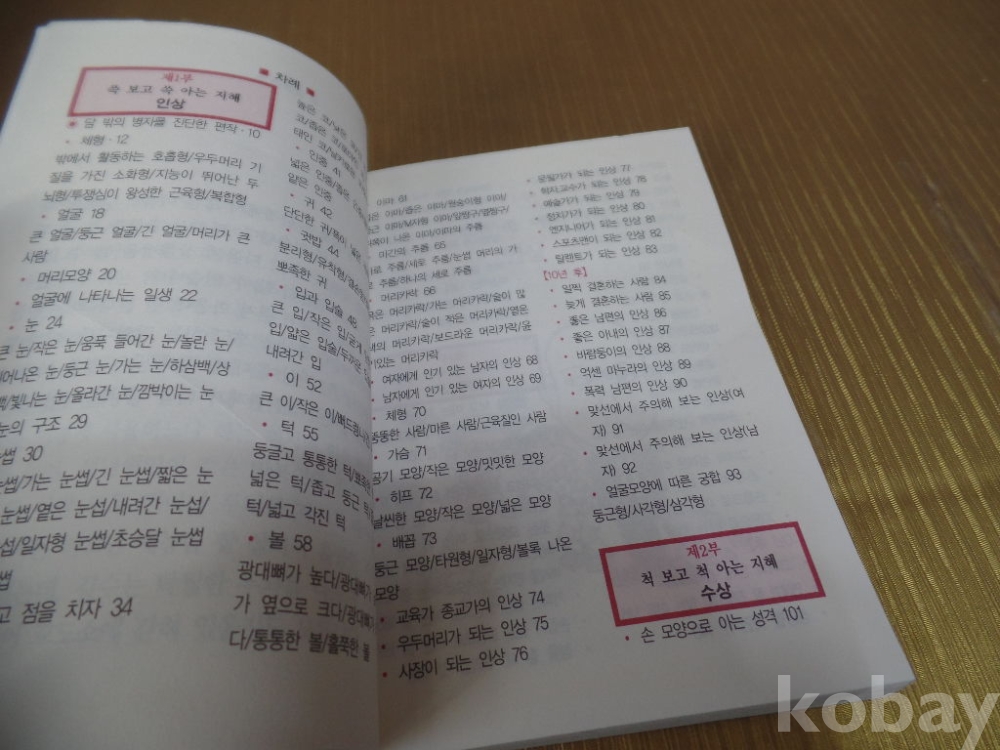 ■ 차례 ■
제1부
쏙 보고 쏙 아는 지혜
인상
담 밖의 병자를 진단한 편작 · 10
• 체형 · 12
밖에서 활동하는 호흡형/우두머리 기
질을 가진 소화형/지능이 뛰어난 두
뇌형/투쟁심이 왕성한 근육형/복합형
• 얼굴 18
큰 얼굴/둥근 얼굴/긴 얼굴/머리가 큰
사람
• 머리모양 20
• 얼굴에 나타나는 일생 22
• 눈 24
눈/작은 눈/움푹 들어간 눈/놀란 눈/
눈/둥근 눈/가는 눈/하삼백/상
빛나는 눈/올라간 눈/깜박이는 눈
구조 29
30
눈썹/가는 눈썹/긴 눈썹/짧은 눈
눈썹/옅은 눈섭/내려간 눈섭/
일자형 눈썹/초승달 눈썹
점을 치자 34
높은
• 인중 41
넓은 인중/좁은
얕은 인중
• 귀 42
단단한
• 귓밥 44
뾰족한 귀
• 입과 입술 48
큰 입/작은 입/
입/얇은 입술/
내려간 입
• 이 52
큰 이/작은 이/
• 턱 55
둥글고 통통한 턱/
넓은 턱/좁고 둥근
턱/넓고 각진 턱
• 볼 58
광대뼈가 높다/광대뼈가
가 옆으로 크다/광대뼈가
다/통통한 볼/홀쭉한 볼
이마 61
이마/좁은 이마/원숭이형 이마/
나온 이마/이마의 주름
미간의 주름 65
주름/세로 주름/눈썹 머리의 가
주름/하나의 세로 주름
• 머리카락 66
머리카락/가는 머리카락/숱이 많
머리카락/숱이 적은 머리카락/옅은
머리카락/보드라운 머리카락/윤
있는 머리카락
• 여자에게 인기 있는 남자의 인상 68
• 남자에게 인기 있는 여자의 인상 69
• 체형 70
뚱뚱한 사람/마른 사람/근육질인 사람
• 가슴 71
공기 모양/작은 모양/밋밋한 모양
• 히프 72
날씬한 모양/작은 모양/넓은 모양
• 배꼽 73
둥근 모양/타원형/일자형/볼록 나온
모양
• 교육가 종교가의 인상 74
• 우두머리가 되는 인상 75
• 사장이 되는 인상 76
• 문필가가 되는 인상 77
• 학자,교수가 되는 인상 78
• 예술가가 되는 인상 79
• 정치가가 되는 인상 80
• 엔지니어가 되는 인상 81
• 스포츠맨이 되는 인상 82
• 탤런트가 되는 인상 83
【10년 후】
• 일찍 결혼하는 사람 84
• 늦게 결혼하는 사람 85
• 좋은 남편의 인상 86
• 좋은 아내의 인상 87
• 바람둥이의 인상 88
• 억센 마누라의 인상 89
• 폭력 남편의 인상 90
• 맞선에서 주의해 보는 인상(여
자) 91
• 맞선에서 주의해 보는 인상(남
자) 92
• 얼굴모양에 따른 궁합 93
둥근형/사각형/삼각형
제2부
척 보고 척 아는 지혜
수상
• 손 모양으로 아는 성격 101
kobay